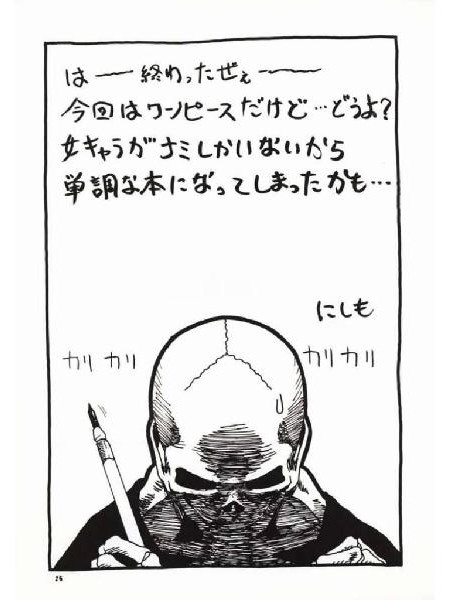 はー終わったぜぇー
今回はワンピースだけど…どうよ?
女キャラがナミしかいないから
単調な本になってしまったかも…
にしも
カリカリ
カリカリ